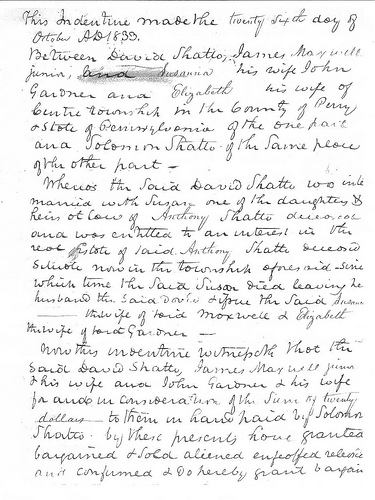 This Indenture made the twenty sixth day of
October AD 1833.
Between David Shatto, James Maxwell
junior, and Susanna his wife John
Gardner and Elizabeth his wife of
Centre township in the County of Perry
& State of Pennsylvania of the one part
and Solomon Shatto of the Same place
of the other part —
Whereas the Said David Shatto was inter
married with Susan one of the daughters &
heirs at law of Anthony Shatto deceased
and was entitled to an interest in the
real Estate of said Anthony Shatto deceased
Situate now in the township aforesaid Since
which time the Said Susan died leaving he
husband the Said David & issue the Said Susanna
—— the wife of said Maxwell & Elizabeth
the wife of said Gardner —
Now this indenture witnesseth that the
Said David Shatto, James Maxwell junior
& his wife and John Gardner & his wife
for and in consideration of the Sum of twenty
dollars — to them in hand paid by Solomon
Shatto by these presents have granted
bargained & Sold aliened enfeoffed released
and confirmed & Do hereby grant bargain